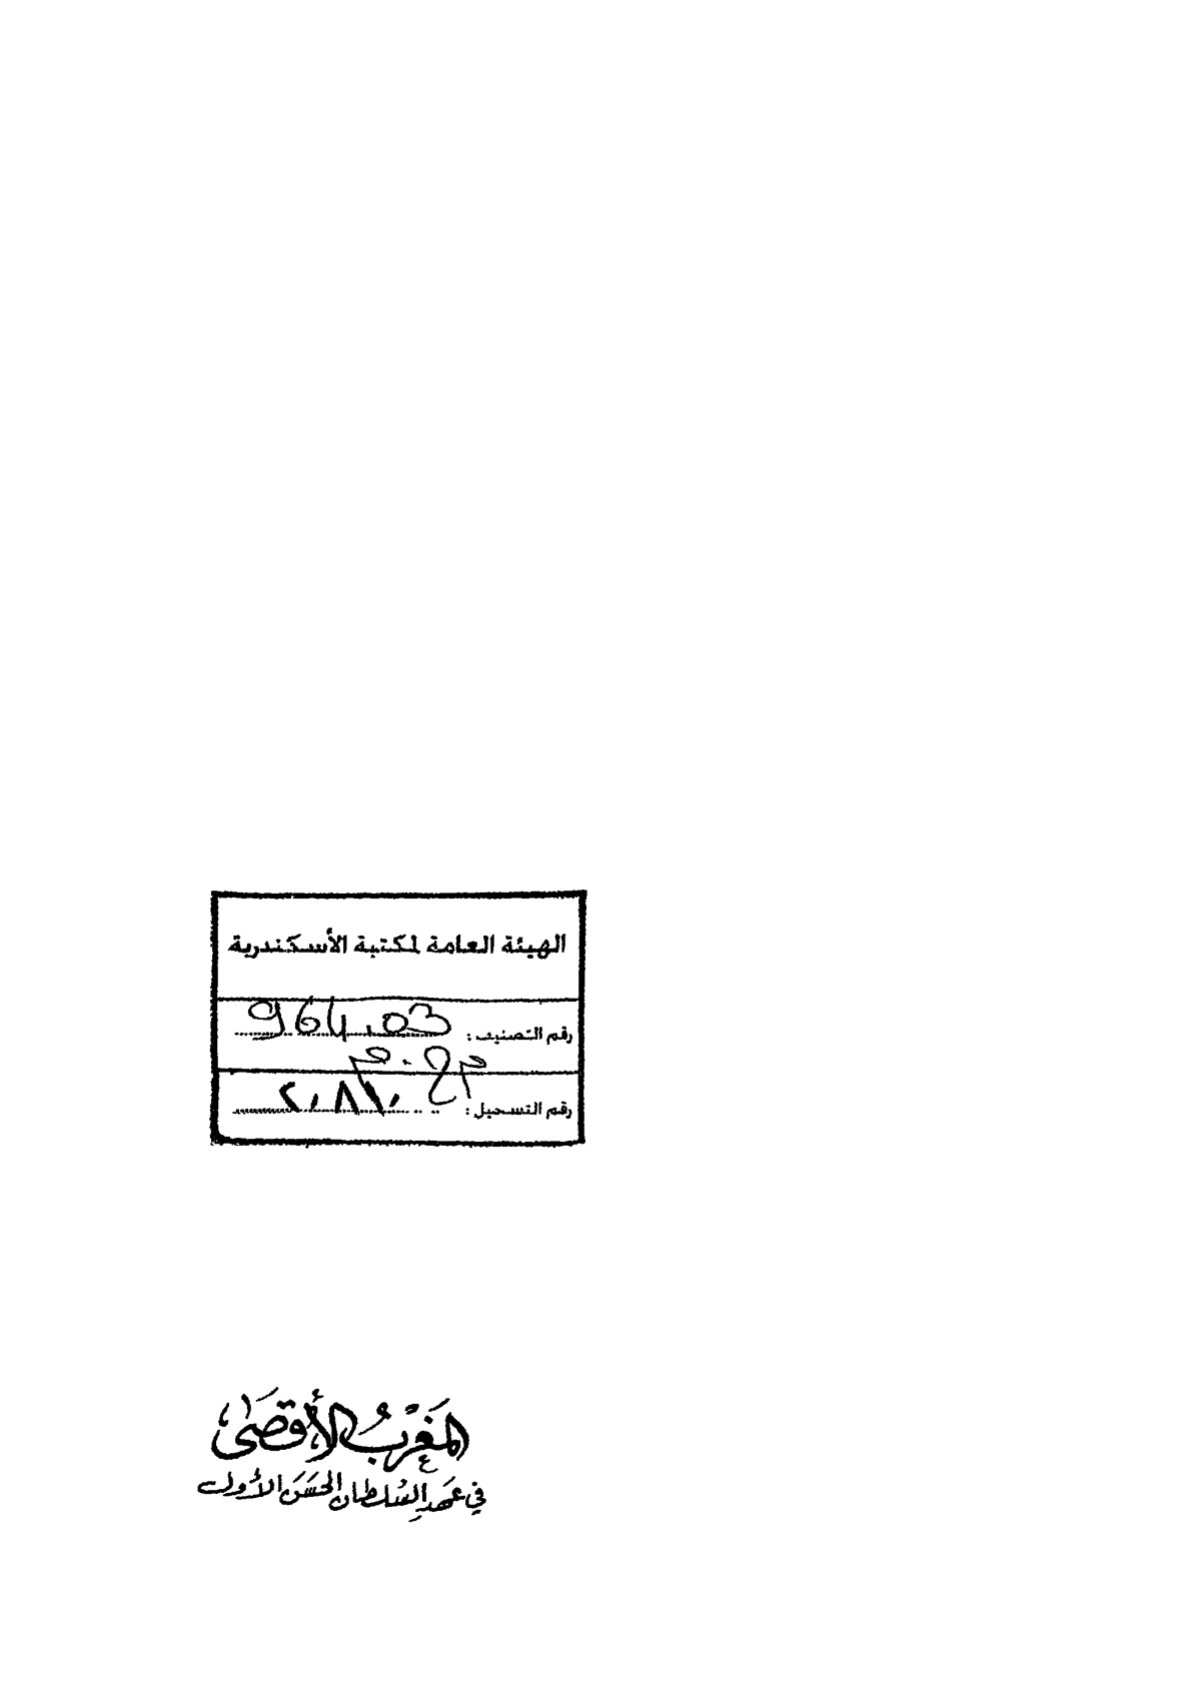 الهيئة العامة لمكتبة الأسكندرية
رقم التصنيف : 964.03
رقم التسجيل : ٢٠٨١٠
المغرب الأقصى
في عهد السلطان الحسن الأول